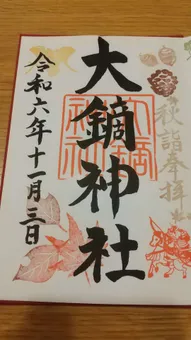 秋詣奉拝
大鏑神社
令和六年十一月三日